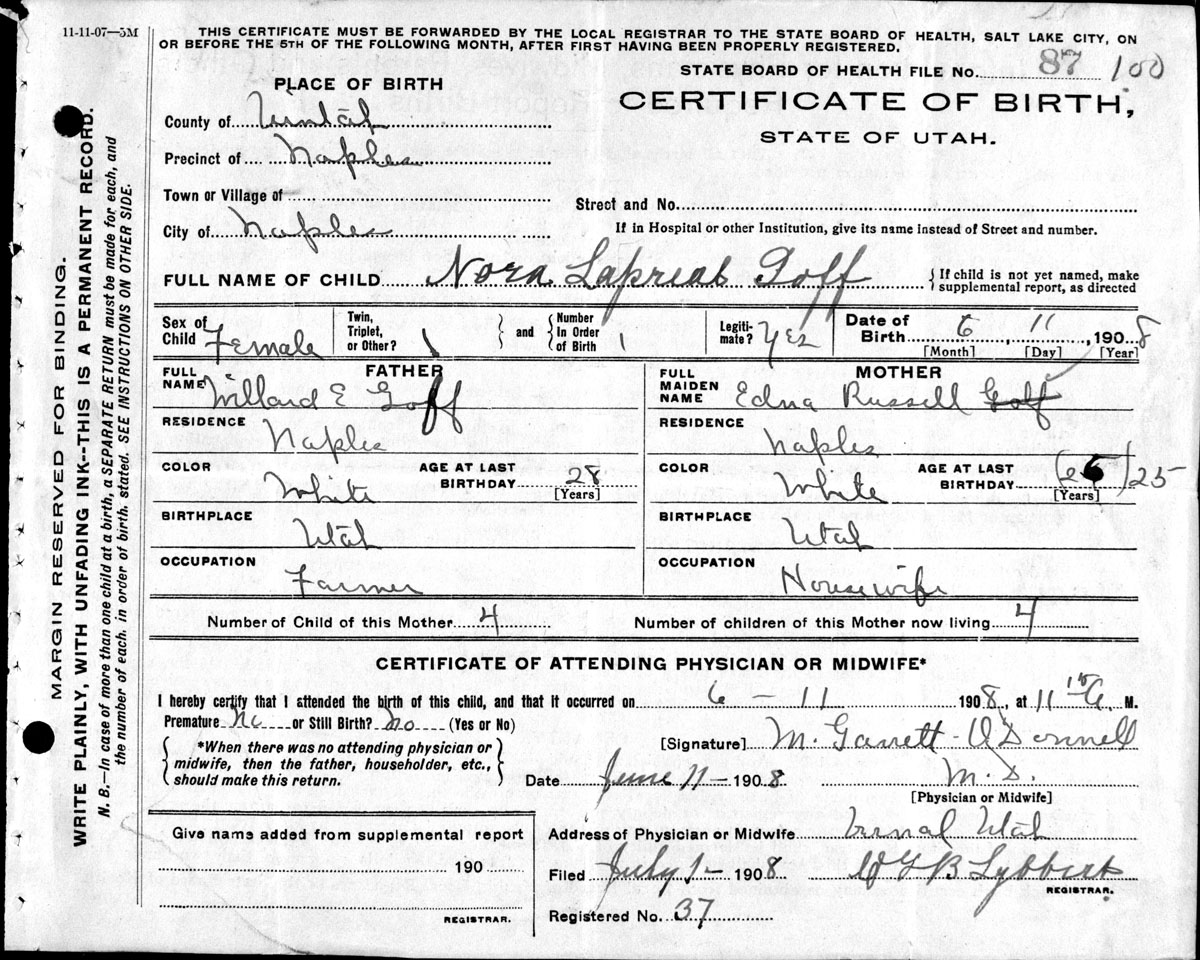 11-11-07—5M
THIS CERTIFICATE MUST BE FORWARDED BY THE LOCAL REGISTRAR TO THE STATE BOARD OF HEALTH, SALT LAKE CITY, ON
OR BEFORE THE 5TH OF THE FOLLOWING MONTH, AFTER FIRST HAVING BEEN PROPERLY REGISTERED.
STATE BOARD OF HEALTH FILE NO. 87 100
PLACE OF BIRTH
CERTIFICATE OF BIRTH,
STATE OF UTAH.
County of Uintah
Precinct of Naples
Town or Village of
Street and No.
City of Naples
If in Hospital or other Institution, give its name instead of Street and number.
FULL NAME OF CHILD Nora Lapreal Goff
{ If child is not yet named, make
supplemental report, as directed
Sex of Child Female
Twin, Triplet, or Other? 1 } and { Number In Order of Birth 1
Legitimate? Yes
Date of Birth 6, 11, 1908
[Month] [Day] [Year]
FATHER
MOTHER
FULL NAME Willard E Goff
FULL MAIDEN NAME Edna Russell Goff
RESIDENCE Naples
RESIDENCE Naples
COLOR White
AGE AT LAST BIRTHDAY 28
[Years]
COLOR White
AGE AT LAST BIRTHDAY 25
[Years]
BIRTHPLACE Utah
BIRTHPLACE Utah
OCCUPATION Farmer
OCCUPATION Housewife
Number of Child of this Mother 4
Number of children of this Mother now living 4
CERTIFICATE OF ATTENDING PHYSICIAN OR MIDWIFE*
I hereby certify that I attended the birth of this child, and that it occurred on 6 - 11 1908, at 11 10 A. M.
Premature No or Still Birth? No (Yes or No)
*When there was no attending physician or
midwife, then the father, householder, etc.,
should make this return.
[Signature] M. Garrett-O'Donnell
Date June 11 - 1908 M.D.
[Physician or Midwife]
Give name added from supplemental report
190
REGISTRAR.
Address of Physician or Midwife Vernal Utah
Filed July 1 - 1908 Lybbert
REGISTRAR.
Registered No. 37
MARGIN RESERVED FOR BINDING.
WRITE PLAINLY, WITH UNFADING INK--THIS IS A PERMANENT RECORD.
N. B.—In case of more than one child at a birth, a SEPARATE RETURN must be made for each, and
the number of each, in order of birth, stated. SEE INSTRUCTIONS ON OTHER SIDE.